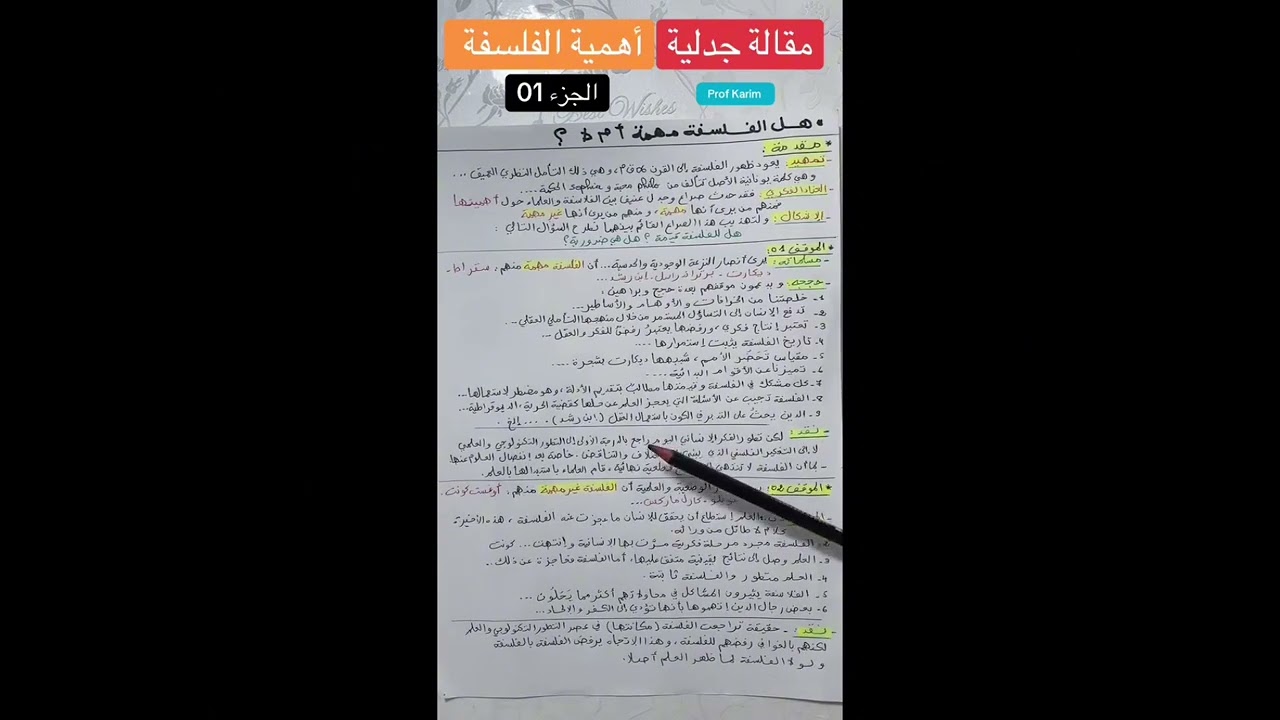 مقالة جدلية أهمية الفلسفة
الجزء 01 Prof Karim
Best Wishes
• هل الفلسفة مهمة أم لا ؟
* مقدمة:
- تمهيد: يعود ظهور الفلسفة إلى القرن 06 ق م، وهي ذلك التأمل النظري العميق ...
وهي كلمة يونانية الأصل تتألف من philo محبة و sophia الحكمة ....
- العناد الفكري: فقد حدث صراع وجدل عنيف بين الفلاسفة والعلماء حول أهميتها
فمنهم من يرى أنها مهمة، ومنهم من يرى أنها غير مهمة
- الإشكال: ولتهذيب هذا الصراع القائم بينهما نطرح السؤال التالي:
هل للفلسفة قيمة؟ هل هي ضرورية؟
* الموقف 01:
- مسلماته: يرى أنصار النزعة الوجودية والحدسية... أن الفلسفة مهمة منهم: سقراط -
ديكارت - برتراند راسل. ابن رشد...
- حججه: ويدعمون موقفهم بعدة حجج وبراهين:
1- خلصتنا من الخرافات والأوهام والأساطير...
2- تدفع الإنسان إلى التساؤل المستمر من خلال منهجها التأملي العقلي...
3- تعتبر إنتاج فكري، ورفضها يعتبر رفضًا للفكر والعقل...
4- تاريخ الفلسفة يثبت إستمرارها....
5- مقياس تَحَضُّر الأمم، شبهها ديكارت بشجرة ....
6- تميزنا عن الأقوام البدائية....
7- كل مشكك في الفلسفة وقيمتها مطالبٌ بتقديم الأدلة، وهو مضطر لإستعمالها...
8- الفلسفة تجيب عن الأسئلة التي يعجز العلم عن حلها كقضية الحرية، الديموقراطية...
9- الدين يحثُ على التدبر في الكون باستعمال العقل (ابن رشد).... إلخ.
- نقد: لكن تطور الفكر الإنساني اليوم راجع بالدرجة الأولى إلى التطور التكنولوجي والعلمي
لا إلى التفكير الفلسفي الذي يبنى والتناقض. خاصة بعد إنفصال العلوم عنها
- بما أن الفلسفة لا تنتهي قطعية نهائية، قام العلماء باستبدالها بالعلم.
* الموقف 02: الوضعية والعلمية أن الفلسفة غير مهمة منهم: أوغست كونت.
- كارل ماركس...
العلم إستطاع أن يحقق للإنسان ما عجزت عنه الفلسفة، هذه الأخيرة
كلام لا طائل من ورائه.
2- الفلسفة مجرد مرحلة فكرية مرّت بها الإنسانية وإنتهت... كونت
3- العلم وصل إلى نتائج يقينية متفق عليها، أما الفلسفة فعاجزة عن ذلك...
4- العلم متطور والفلسفة ثابتة.
5- الفلاسفة يثيرون المشاكل في محاولاتهم أكثر مما يَحُلّون...
6- بعض رجال الدين إتهموها بأنها تؤدي إلى الكفر والإلحاد...
- نقد: - حقيقة تراجعت الفلسفة (مكانتها) في عصر التطور التكنولوجي والعلم
لكنهم بالغوا في رفضهم للفلسفة، وهذا الاتجاه يرفض الفلسفة بالفلسفة
ولولا الفلسفة لما ظهر العلم أصلا.